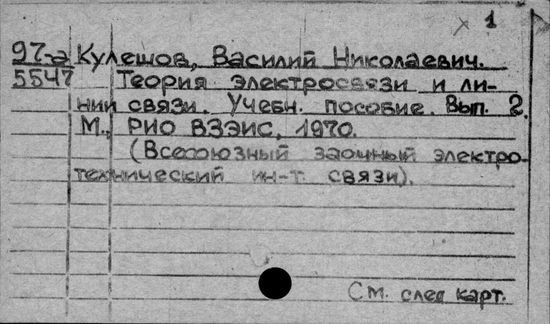 x 1
97-а Кулешов, Василий Николаевич.
5547 Теория электросвязи и ли-
нии связи. Учебн. пособие. Вып. 2.
М., РИО ВЗЭИС, 1970.
(Всесоюзный заочный электро-
технический ин-т связи).
См. след карт.